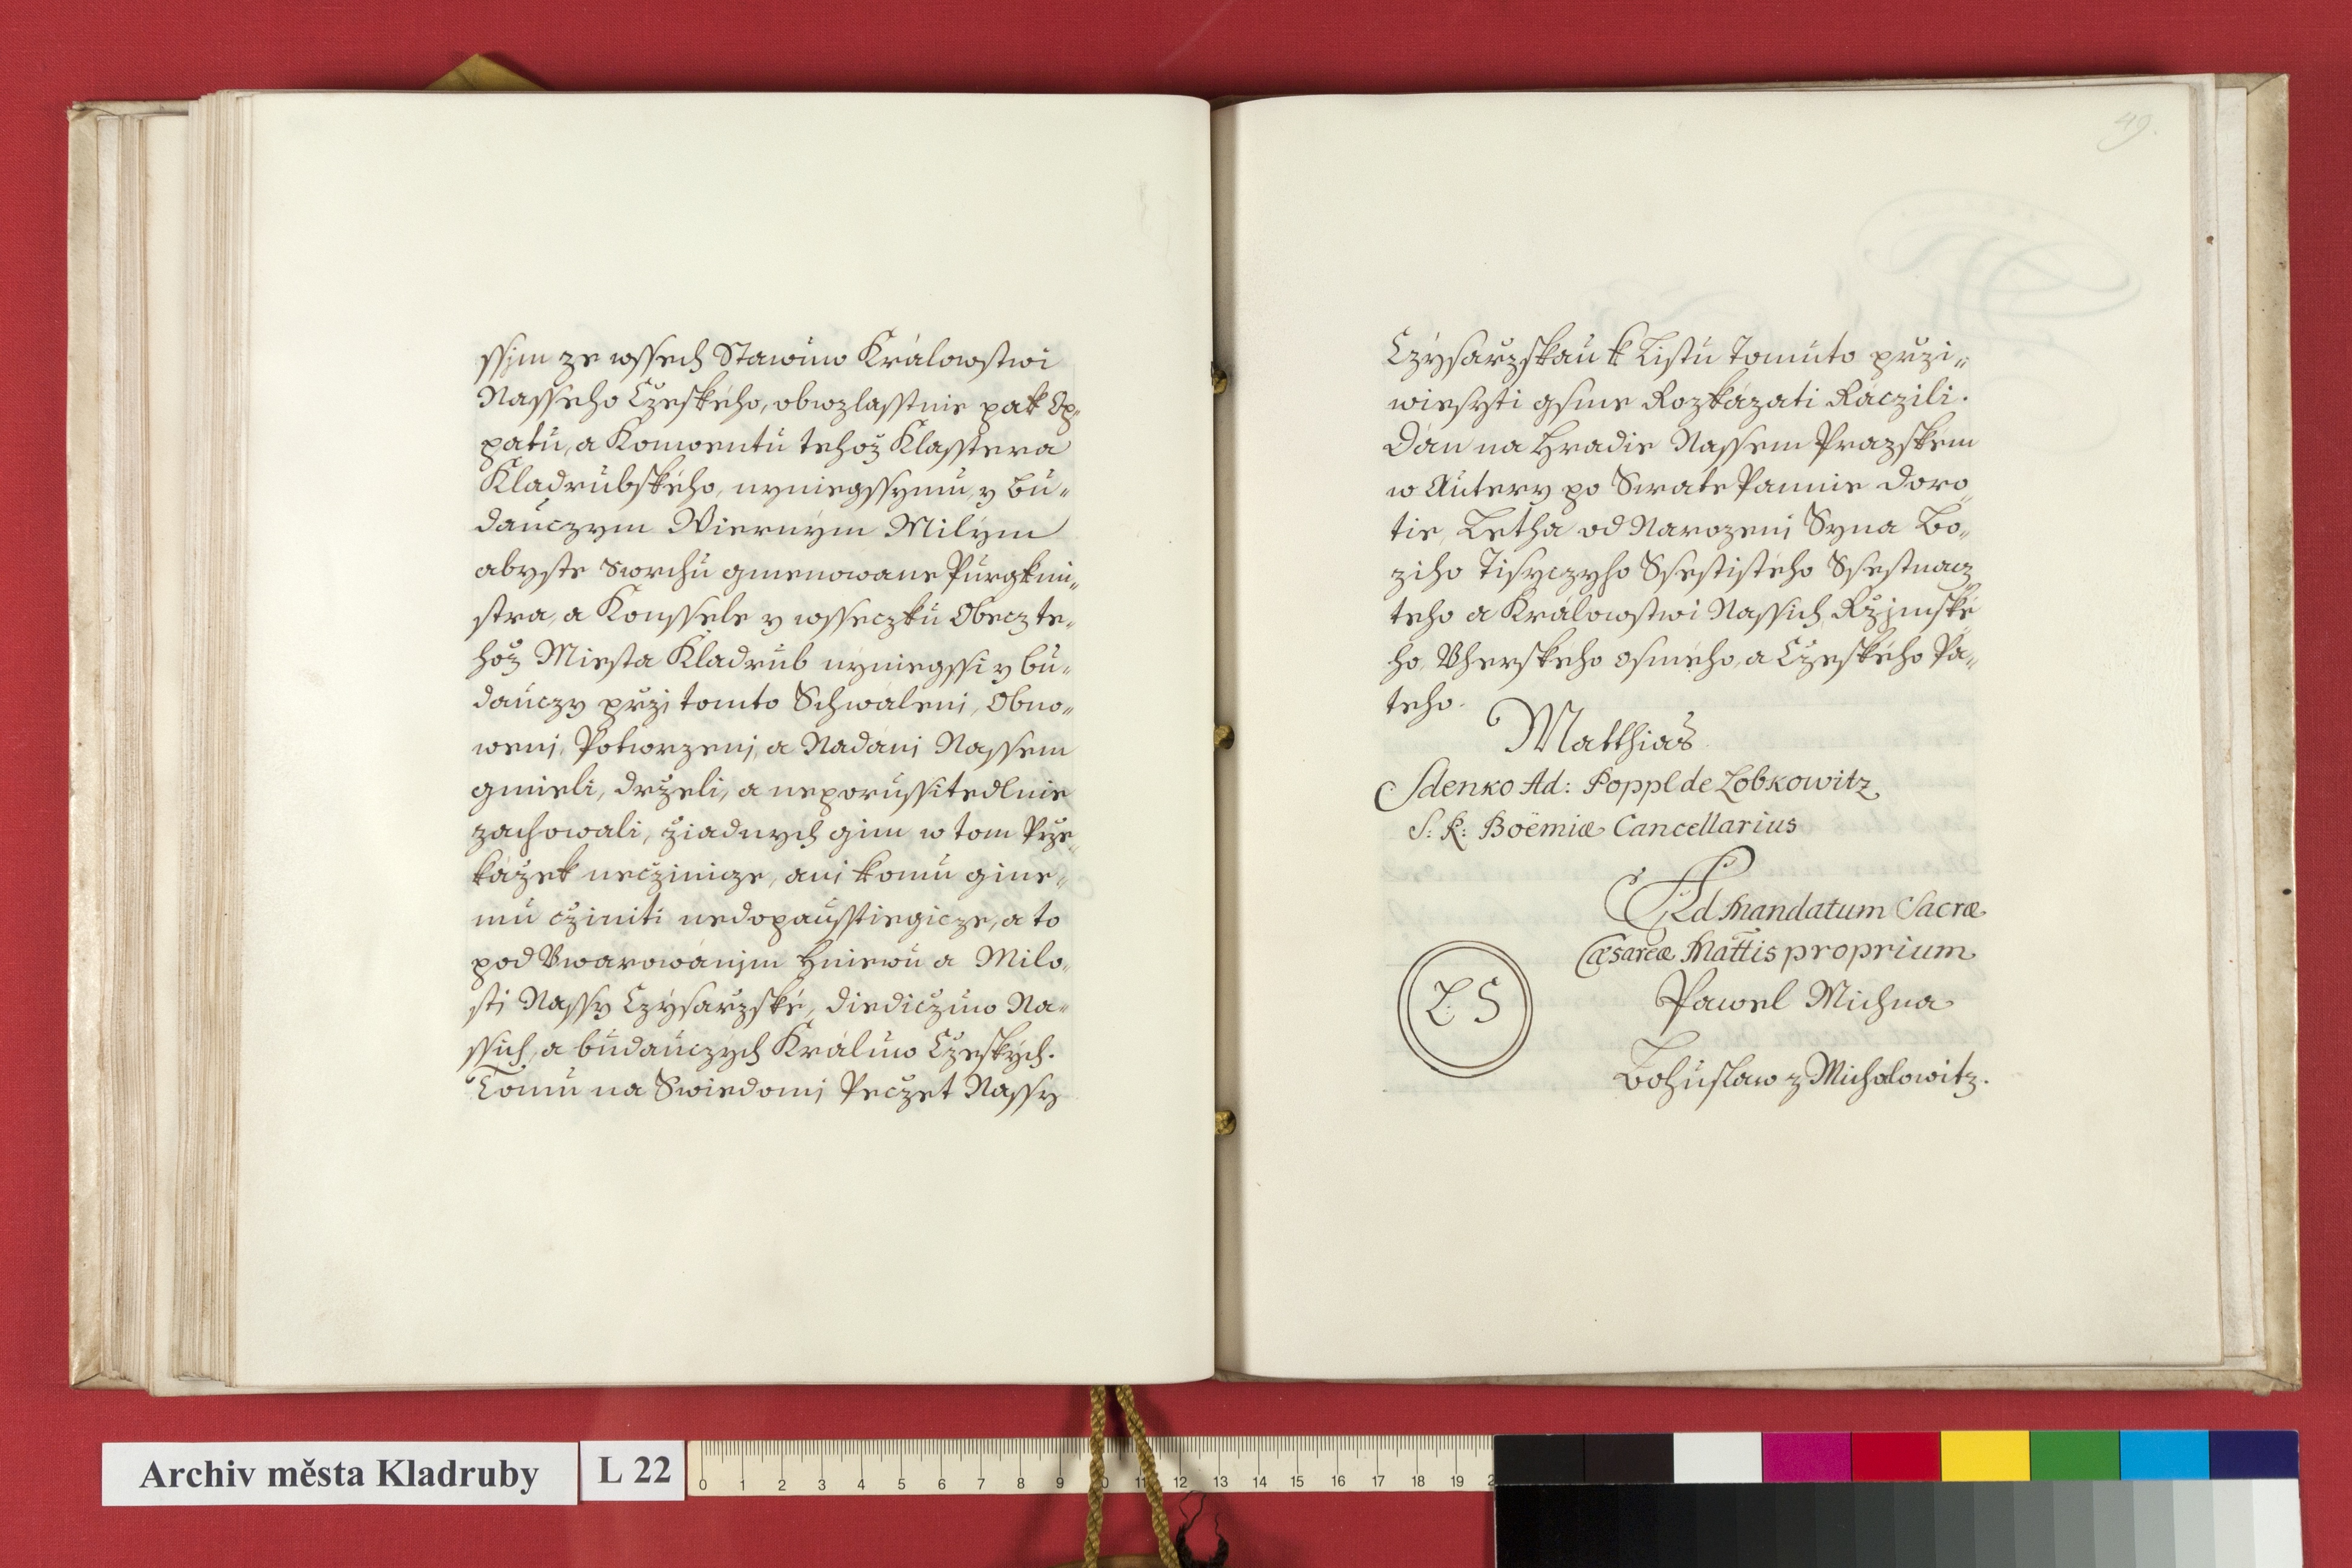 ssjm ze wssech Stawůw Králowstwi
Nasseho Czeského, obwzlasstnie pak Op„
patu, a Konwentu tehož Klasstera
Kladrubského, nyniegssymu, y bu„
dauczym Wierným Milým
abyste Swrchu gmenowane Purgkmi„
stra, a Konssele y wsseczku Obecz te„
hož Miesta Kladrub nýniegssi y bu„
dauczy przi tomto Schwáleni, Obno„
wenj, Potwrzenj, a Nadáni Nassem
gmieli, drželi, a neporussitedlnie
zachowali, žiadnych gim w tom Prze„
kážek neczinicze, ani komu gine„
mu cziniti nedopausstiegicze, a to
pod Vwarowánjm Hniewu a Milo„
sti Nassy Czýsarzské, Diediczuw Na„
ssich, a budauczých Králuw Czeských.
Tomu na Swiedomj Peczet Nassy
49.
Czýsarzskau k Listu Tomuto przi„
wiesyti gsme Rozkázati Ráczili.
Dán na Hradie Nassem Prazském
w Autery po Swate Pannie Doro„
tie, Letha od Narozenj Syna Bo„
ziho Tisyczyho Ssestistého Ssestnacz„
teho a Králowstwi Nassich, Ržjmské
ho, Vherskeho osmého, a Czeského Pá„
teho.
Matthias
Sdenko Ad: Poppl de Lobkowitz
S: R: Boëmiæ Cancellarius
Ad Mandatum Sacræ
Cæsareæ Mattis proprium
L. S
Pawel Michna
Bohuslaw z Michalowitz.
Archiv města Kladruby
L 22
0 1 2 3 4 5 6 7 8 9 0 11 12 13 14 15 16 17 18 19 2